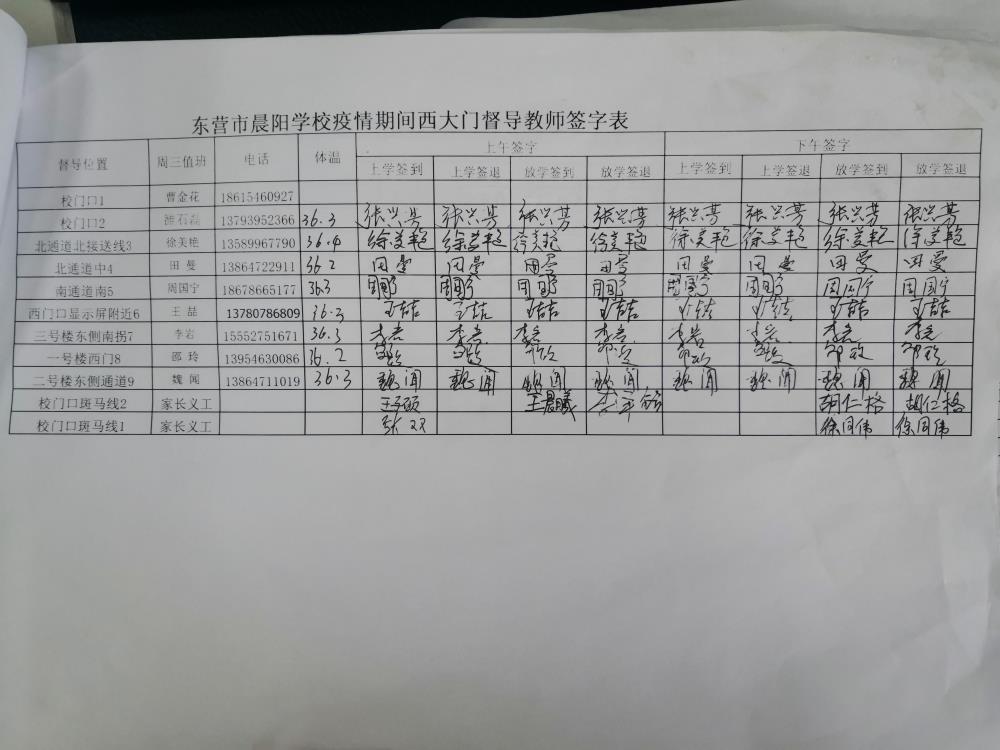 东营市晨阳学校疫情期间西大门督导教师签字表
督导位置 周三值班 电话 体温 上午签字 下午签字
上学签到 上学签退 放学签到 放学签退 上学签到 上学签退 放学签到 放学签退
校门口1 曹金花 18615460927
校门口2 石磊 13793952366 36.3 张兴芳 张兴芳 张兴芳 张兴芳 张兴芳 张兴芳 张兴芳 张兴芳
北通道北接送线3 徐美艳 13589967790 36.4 徐美艳 徐美艳 徐美艳 徐美艳 徐美艳 徐美艳 徐美艳 徐美艳
北通道中4 田曼 13864722911 36.2 田曼 田曼 田曼 田曼 田曼 田曼 田曼 田曼
南通道南5 周国宁 18678665177 36.3 周国宁 周国宁 周国宁 周国宁 周国宁 周国宁 周国宁 周国宁
西门口显示屏附近6 王喆 13780786809 36.3 王喆 王喆 王喆 王喆 王喆 王喆 王喆 王喆
三号楼东侧南拐7 李岩 15552751671 36.3 李岩 李岩 李岩 李岩 李岩 李岩 李岩 李岩
一号楼西门8 邵玲 13954630086 36.2 邵玲 邵玲 邵玲 邵玲 邵玲 邵玲 邵玲 邵玲
二号楼东侧通道9 魏闻 13864711019 36.3 魏闻 魏闻 魏闻 魏闻 魏闻 魏闻 魏闻 魏闻
校门口斑马线2 家长义工 王子硕 王晨曦 胡仁格 胡仁格
校门口斑马线1 家长义工 张双 徐同伟 徐同伟